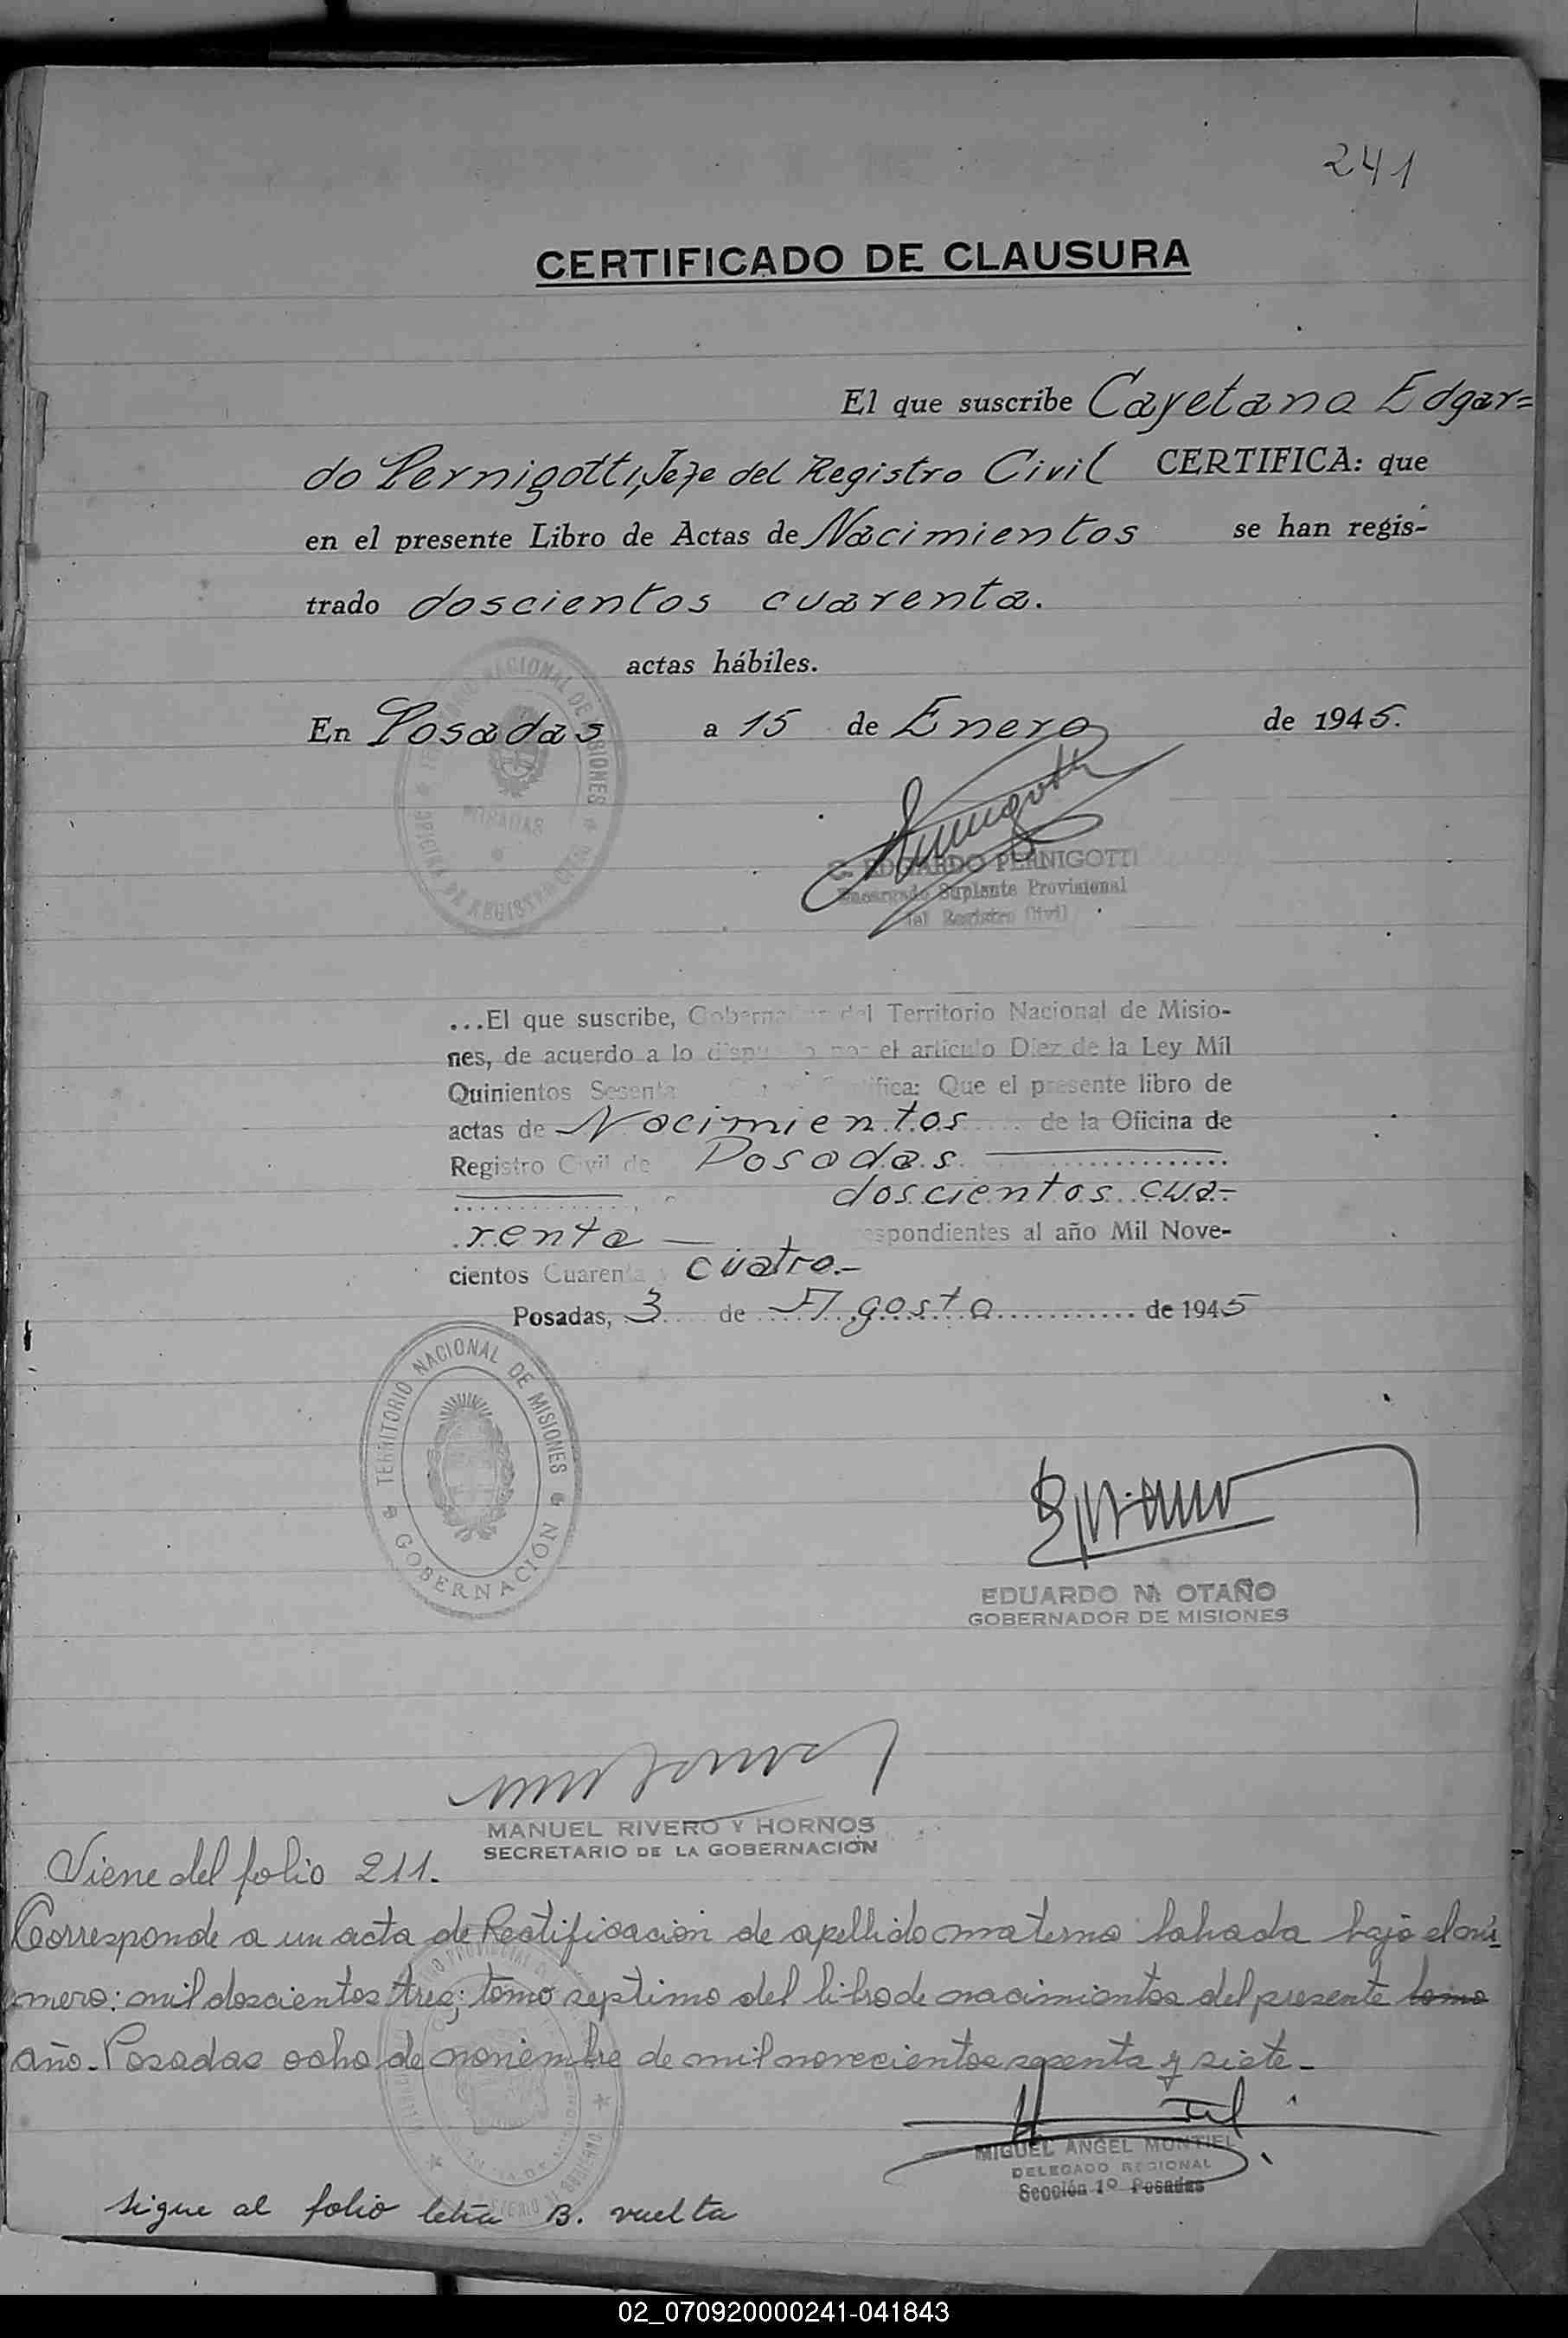 241
CERTIFICADO DE CLAUSURA
El que suscribe Cayetano Edgar=
do Pernigotti, Jefe del Registro Civil CERTIFICA: que
en el presente Libro de Actas de Nacimientos se han regis-
trado doscientos cuarenta.
actas hábiles.
En Posadas a 15 de Enero de 1945.
C. EDGARDO PERNIGOTTI
Encargado Suplente Provisional
del Registro Civil
...El que suscribe, Gobernador del Territorio Nacional de Misio-
nes, de acuerdo a lo dispuesto por el artículo Diez de la Ley Mil
Quinientos Sesenta Certifica: Que el presente libro de
actas de Nacimientos de la Oficina de
Registro Civil de Posadas
doscientos cua-
renta — espondientes al año Mil Nove-
cientos Cuarenta y cuatro.-
Posadas, 3 de Agosto de 1945
TERRITORIO NACIONAL DE MISIONES
GOBERNACIÓN
EDUARDO M. OTAÑO
GOBERNADOR DE MISIONES
MANUEL RIVERO Y HORNOS
SECRETARIO DE LA GOBERNACIÓN
Viene del folio 211.
Corresponde a un acta de Rectificación de apellido materno labrada bajo el nú-
mero: mil doscientos tres; tomo septimo del libro de nacimientos del presente tomo
año. Posadas ocho de noviembre de mil novecientos sesenta y siete.-
MIGUEL ANGEL MONTIEL
DELEGADO REGIONAL
Sección 1º Posadas
Sigue al folio letra B. vuelta
02_070920000241-041843